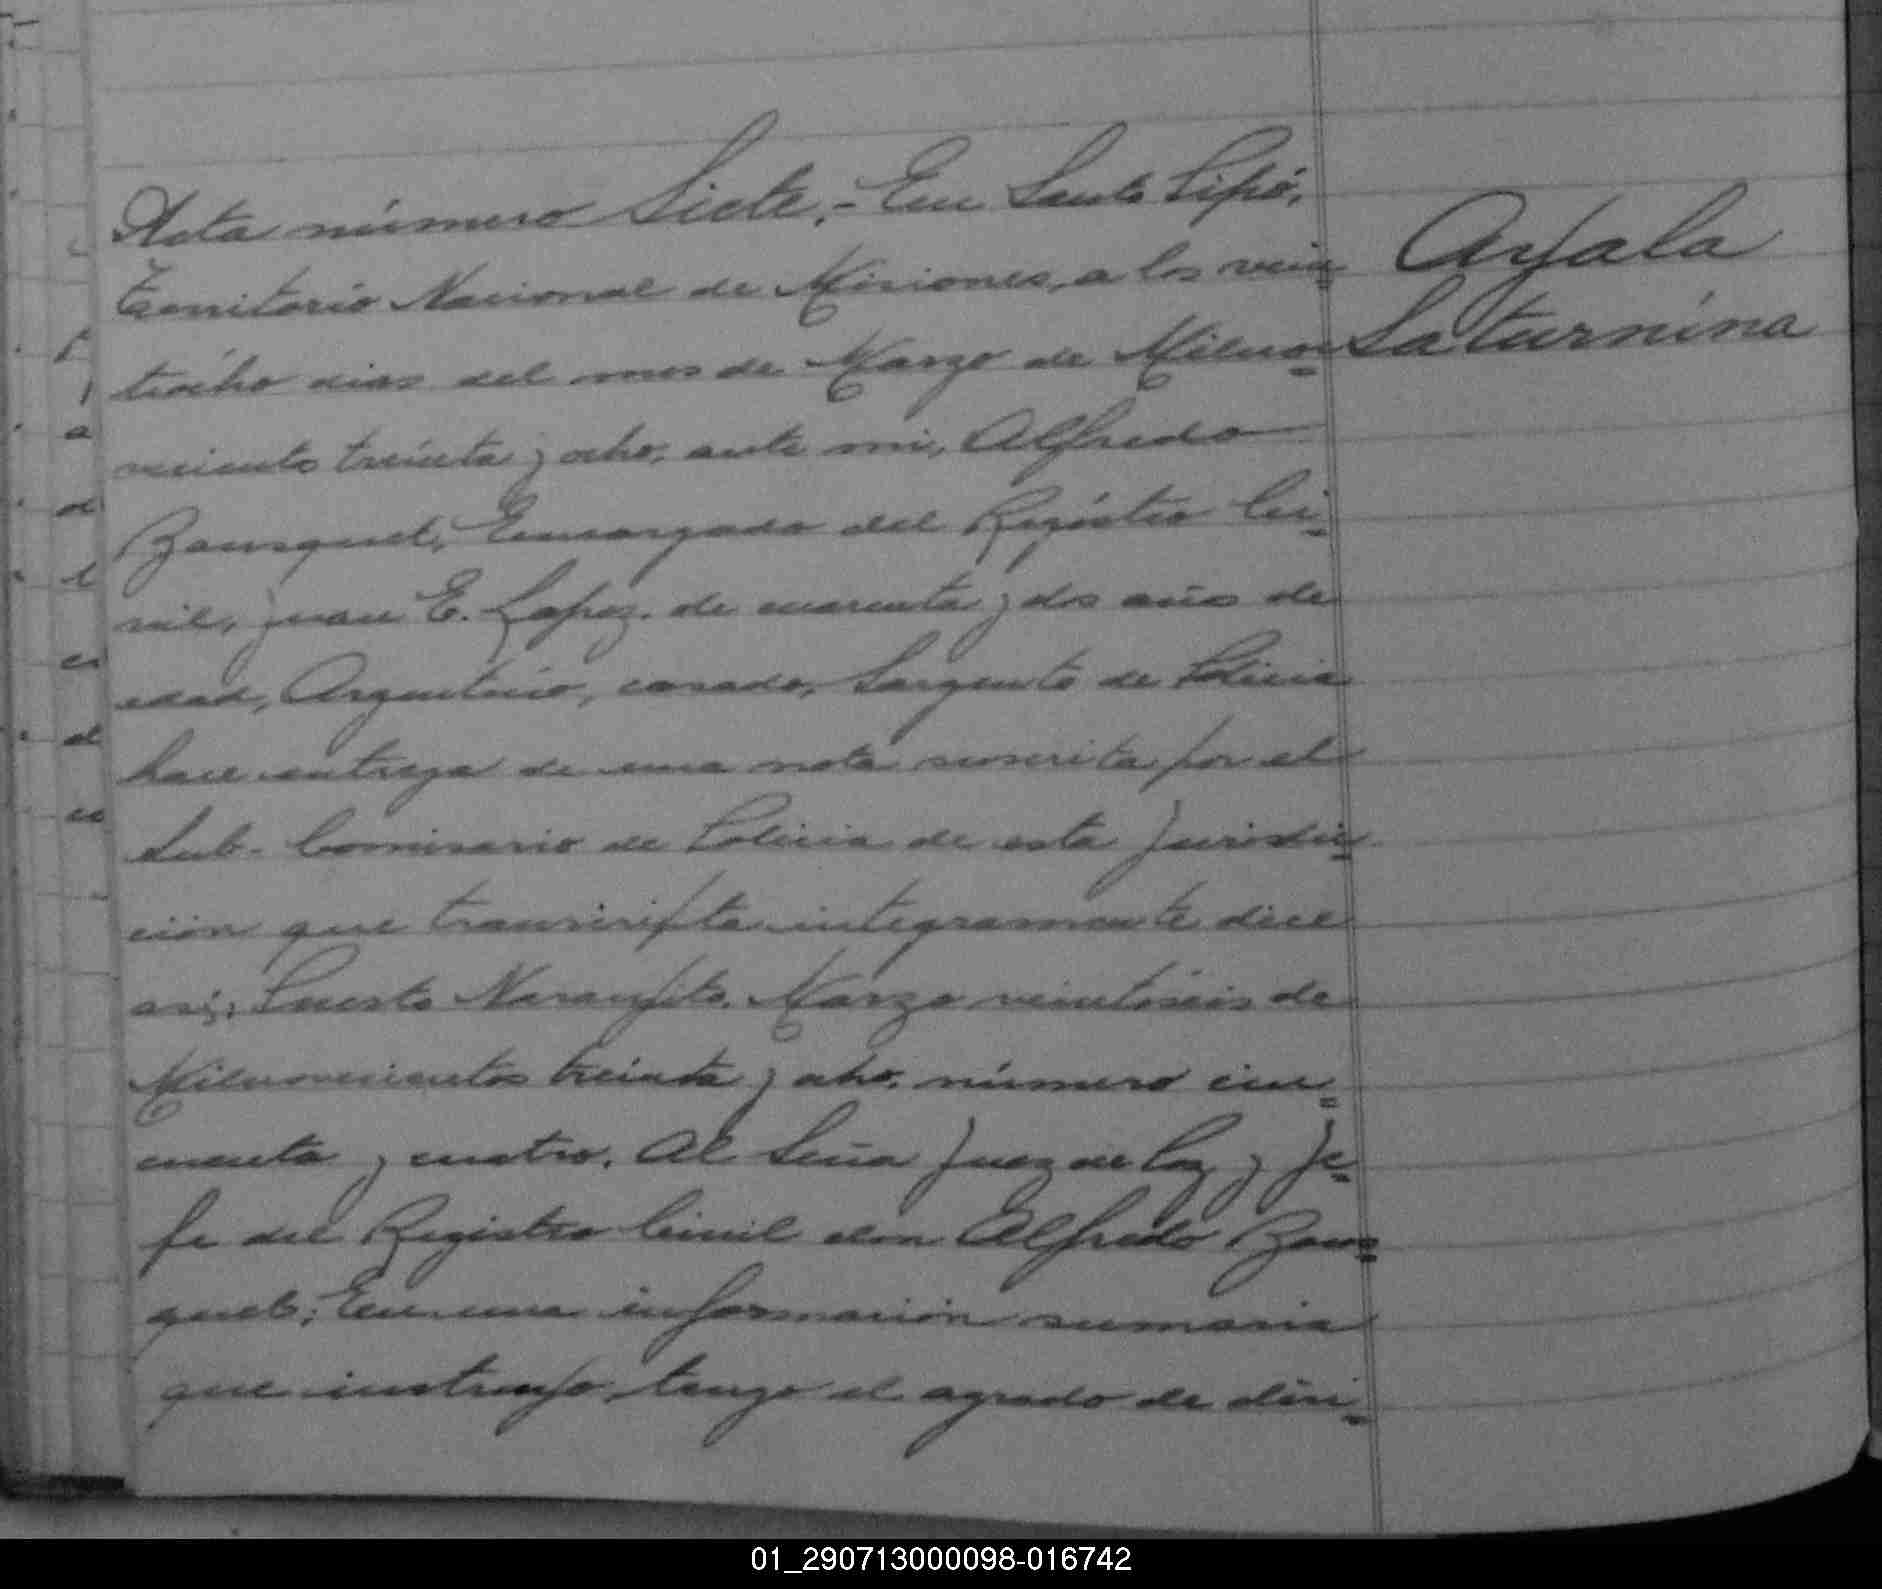 Acta número Siete.- En Santo Pipó,
Territorio Nacional de Misiones, a los vein=
tiocho dias del mes de Marzo de Milno=
vecientos treinta y ocho, ante mi, Alfredo
Encargado del Registro Ci=
vil, Juan E. Lopez, de cuarenta y dos años de
edad, Argentino, casado, Sargento de Policia
hace entrega de una nota suscrita por el
Sub-Comisario de Policia de esta Jurisdic=
ción que transcripta integramente dice
asi: Puesto Naranjito, Marzo veintiseis de
Milnovecientos treinta y ocho, número cin=
cuenta y cuatro. Al Señor Juez de Paz y Je=
fe del Registro Civil don Alfredo
En una información sumaria
que instruyo, tengo el agrado de diri=
Ayala
Saturnina
01_290713000098-016742